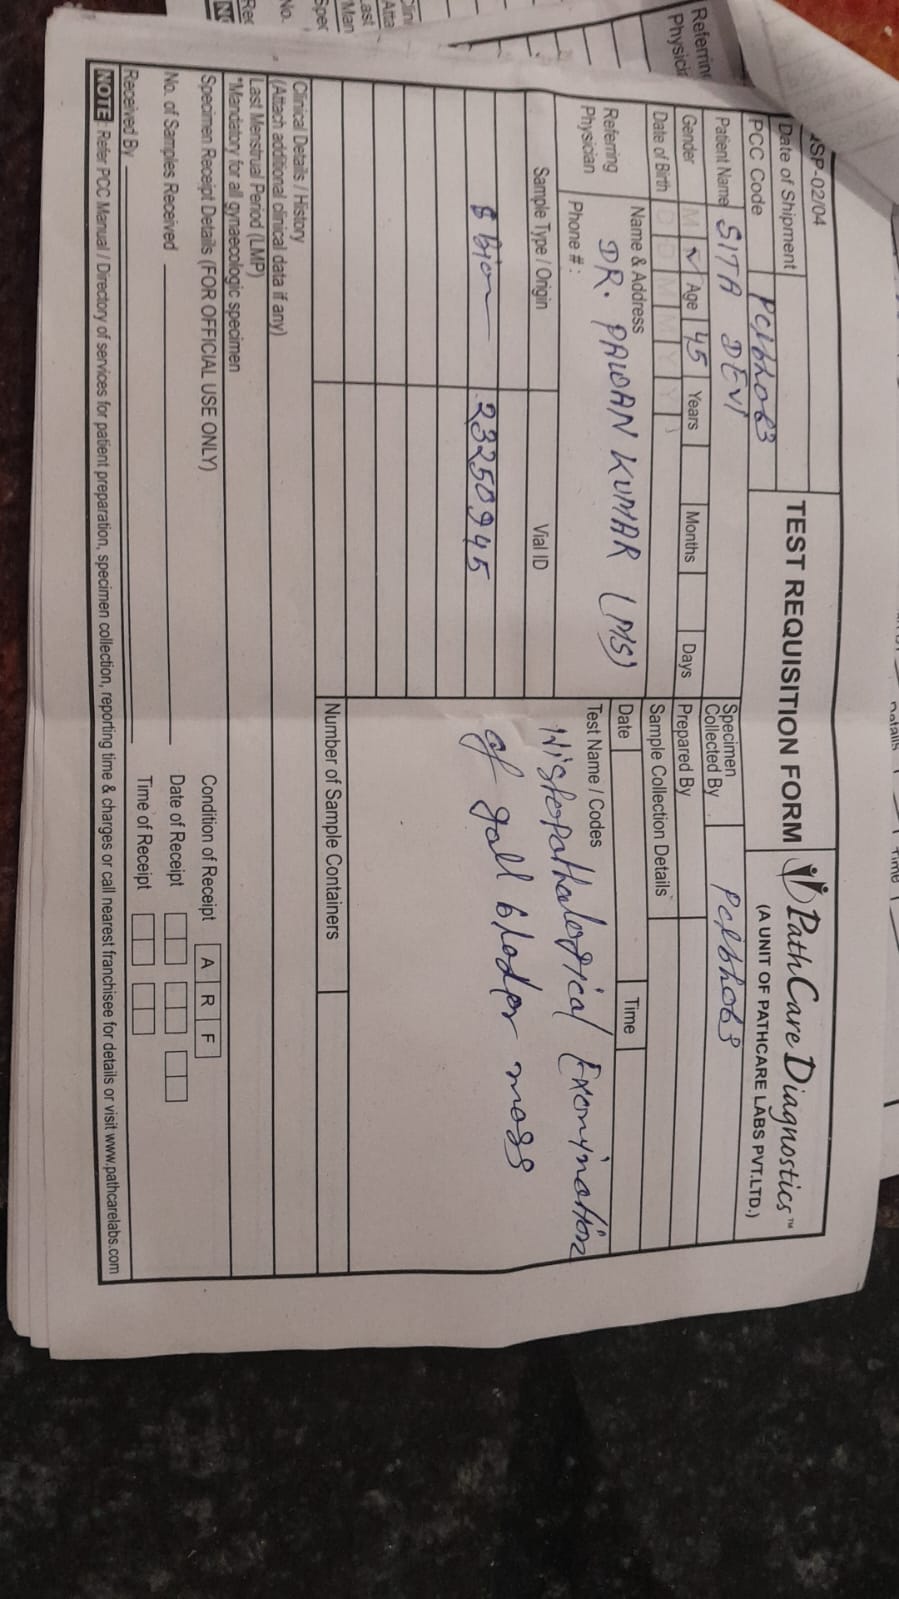 ISP-02/04
TEST REQUISITION FORM
PathCare Diagnostics™
(A UNIT OF PATHCARE LABS PVT.LTD.)
Date of Shipment
PCC Code
Patient Name SITA DEVI
Gender M ✓ Age 45 Years Months Days
Date of Birth D D M M Y Y
Referring Physician
Name & Address
DR. PAWAN KUMAR (MS)
Phone #:
Specimen Collected By
Prepared By
Sample Collection Details
Date Time
Sample Type / Origin Vial ID Test Name / Codes
23250945
Histopathological Exonynotion
of gall blader mass
Number of Sample Containers
Clinical Details / History
(Attach additional clinical data if any)
Last Menstrual Period (LMP)
*Mandatory for all gynaecologic specimen
Specimen Receipt Details (FOR OFFICIAL USE ONLY) Condition of Receipt A R F
No. of Samples Received Date of Receipt
Received By Time of Receipt
NOTE : Refer PCC Manual / Directory of services for patient preparation, specimen collection, reporting time & charges or call nearest franchisee for details or visit www.pathcarelabs.com
Referring